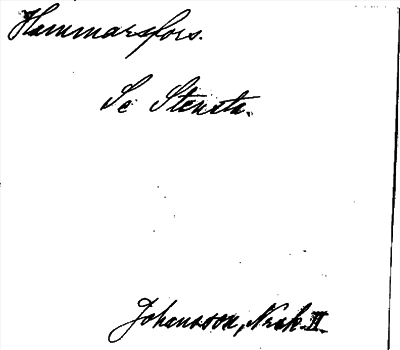 Hammarsfors.
Se Stensta.
Johansson, Nrak. II.